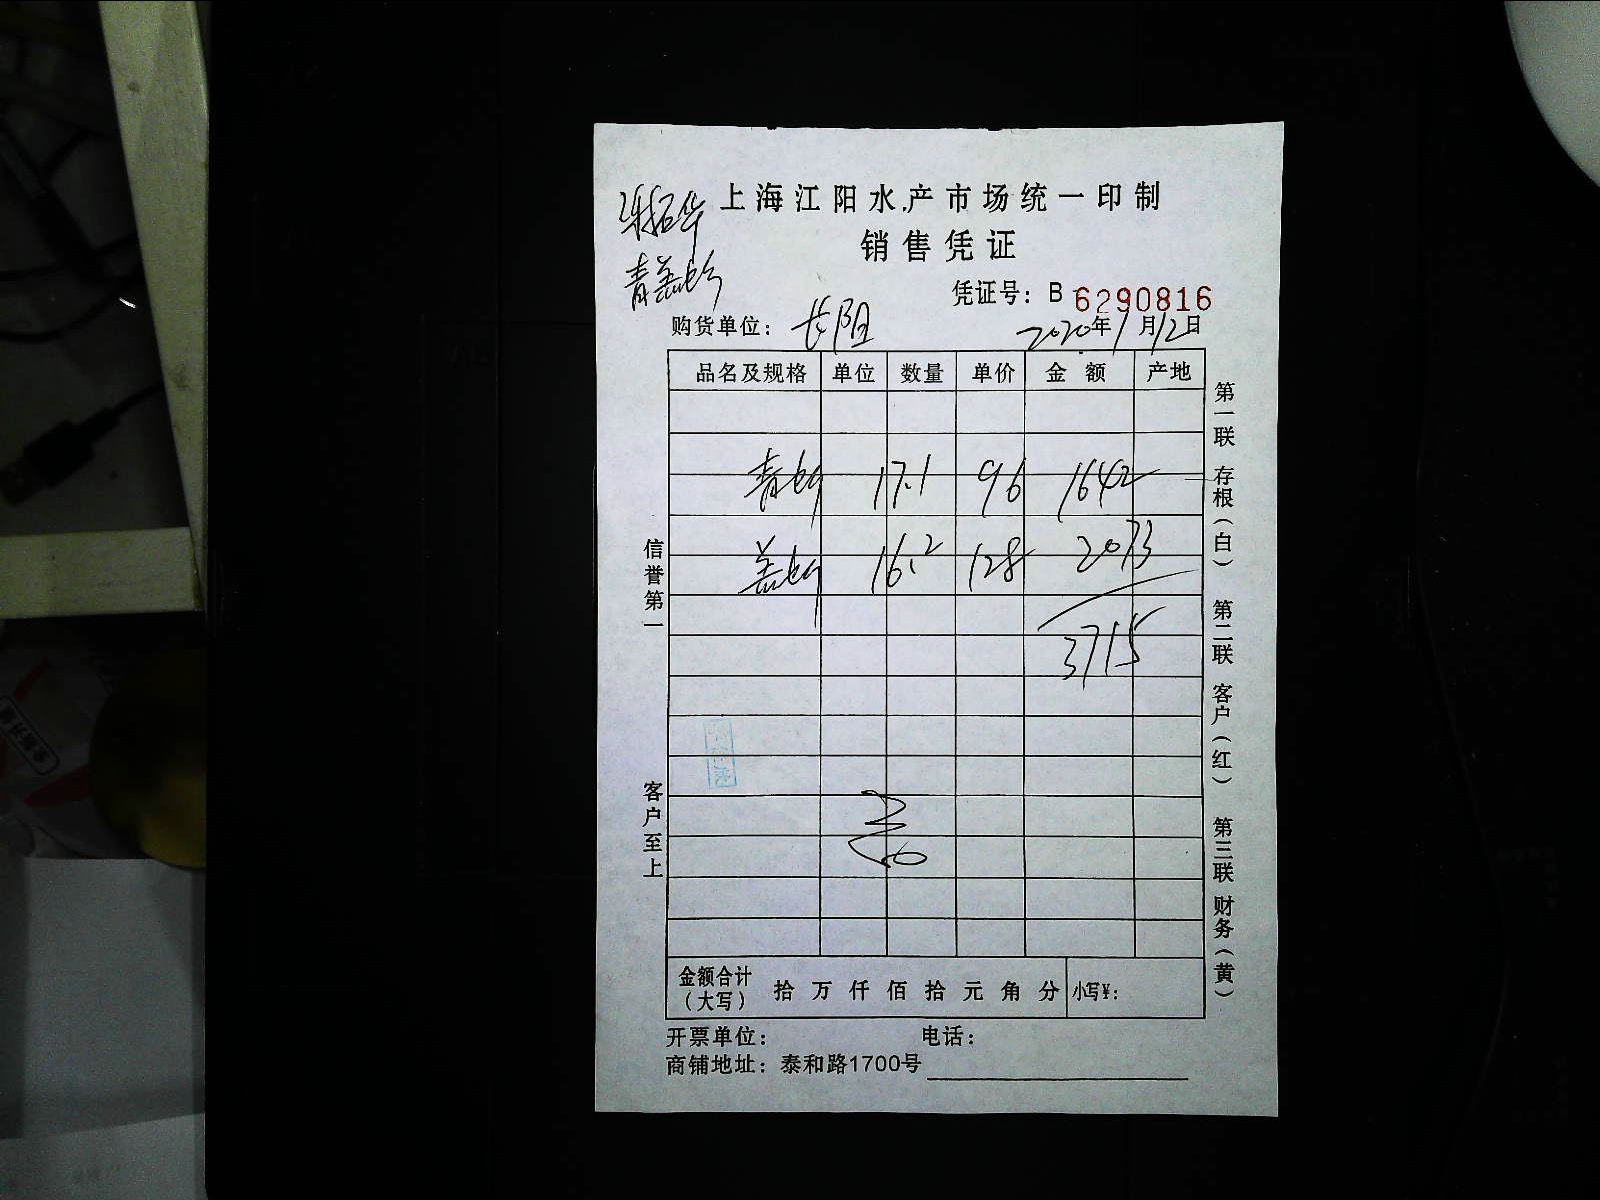 上海江阳水产市场统一印制
销售凭证
凭证号：B 6290816
购货单位：长阳
2020年1月12日
品名及规格 单位 数量 单价 金额 产地
青 17.1 96 1642
盖 16.2 128 2073
3715
金额合计（大写） 拾万仟佰拾元角分 小写¥：
开票单位： 电话：
商铺地址：泰和路1700号
信誉第一
客户至上
第一联 存根（白） 第二联 客户（红） 第三联 财务（黄）